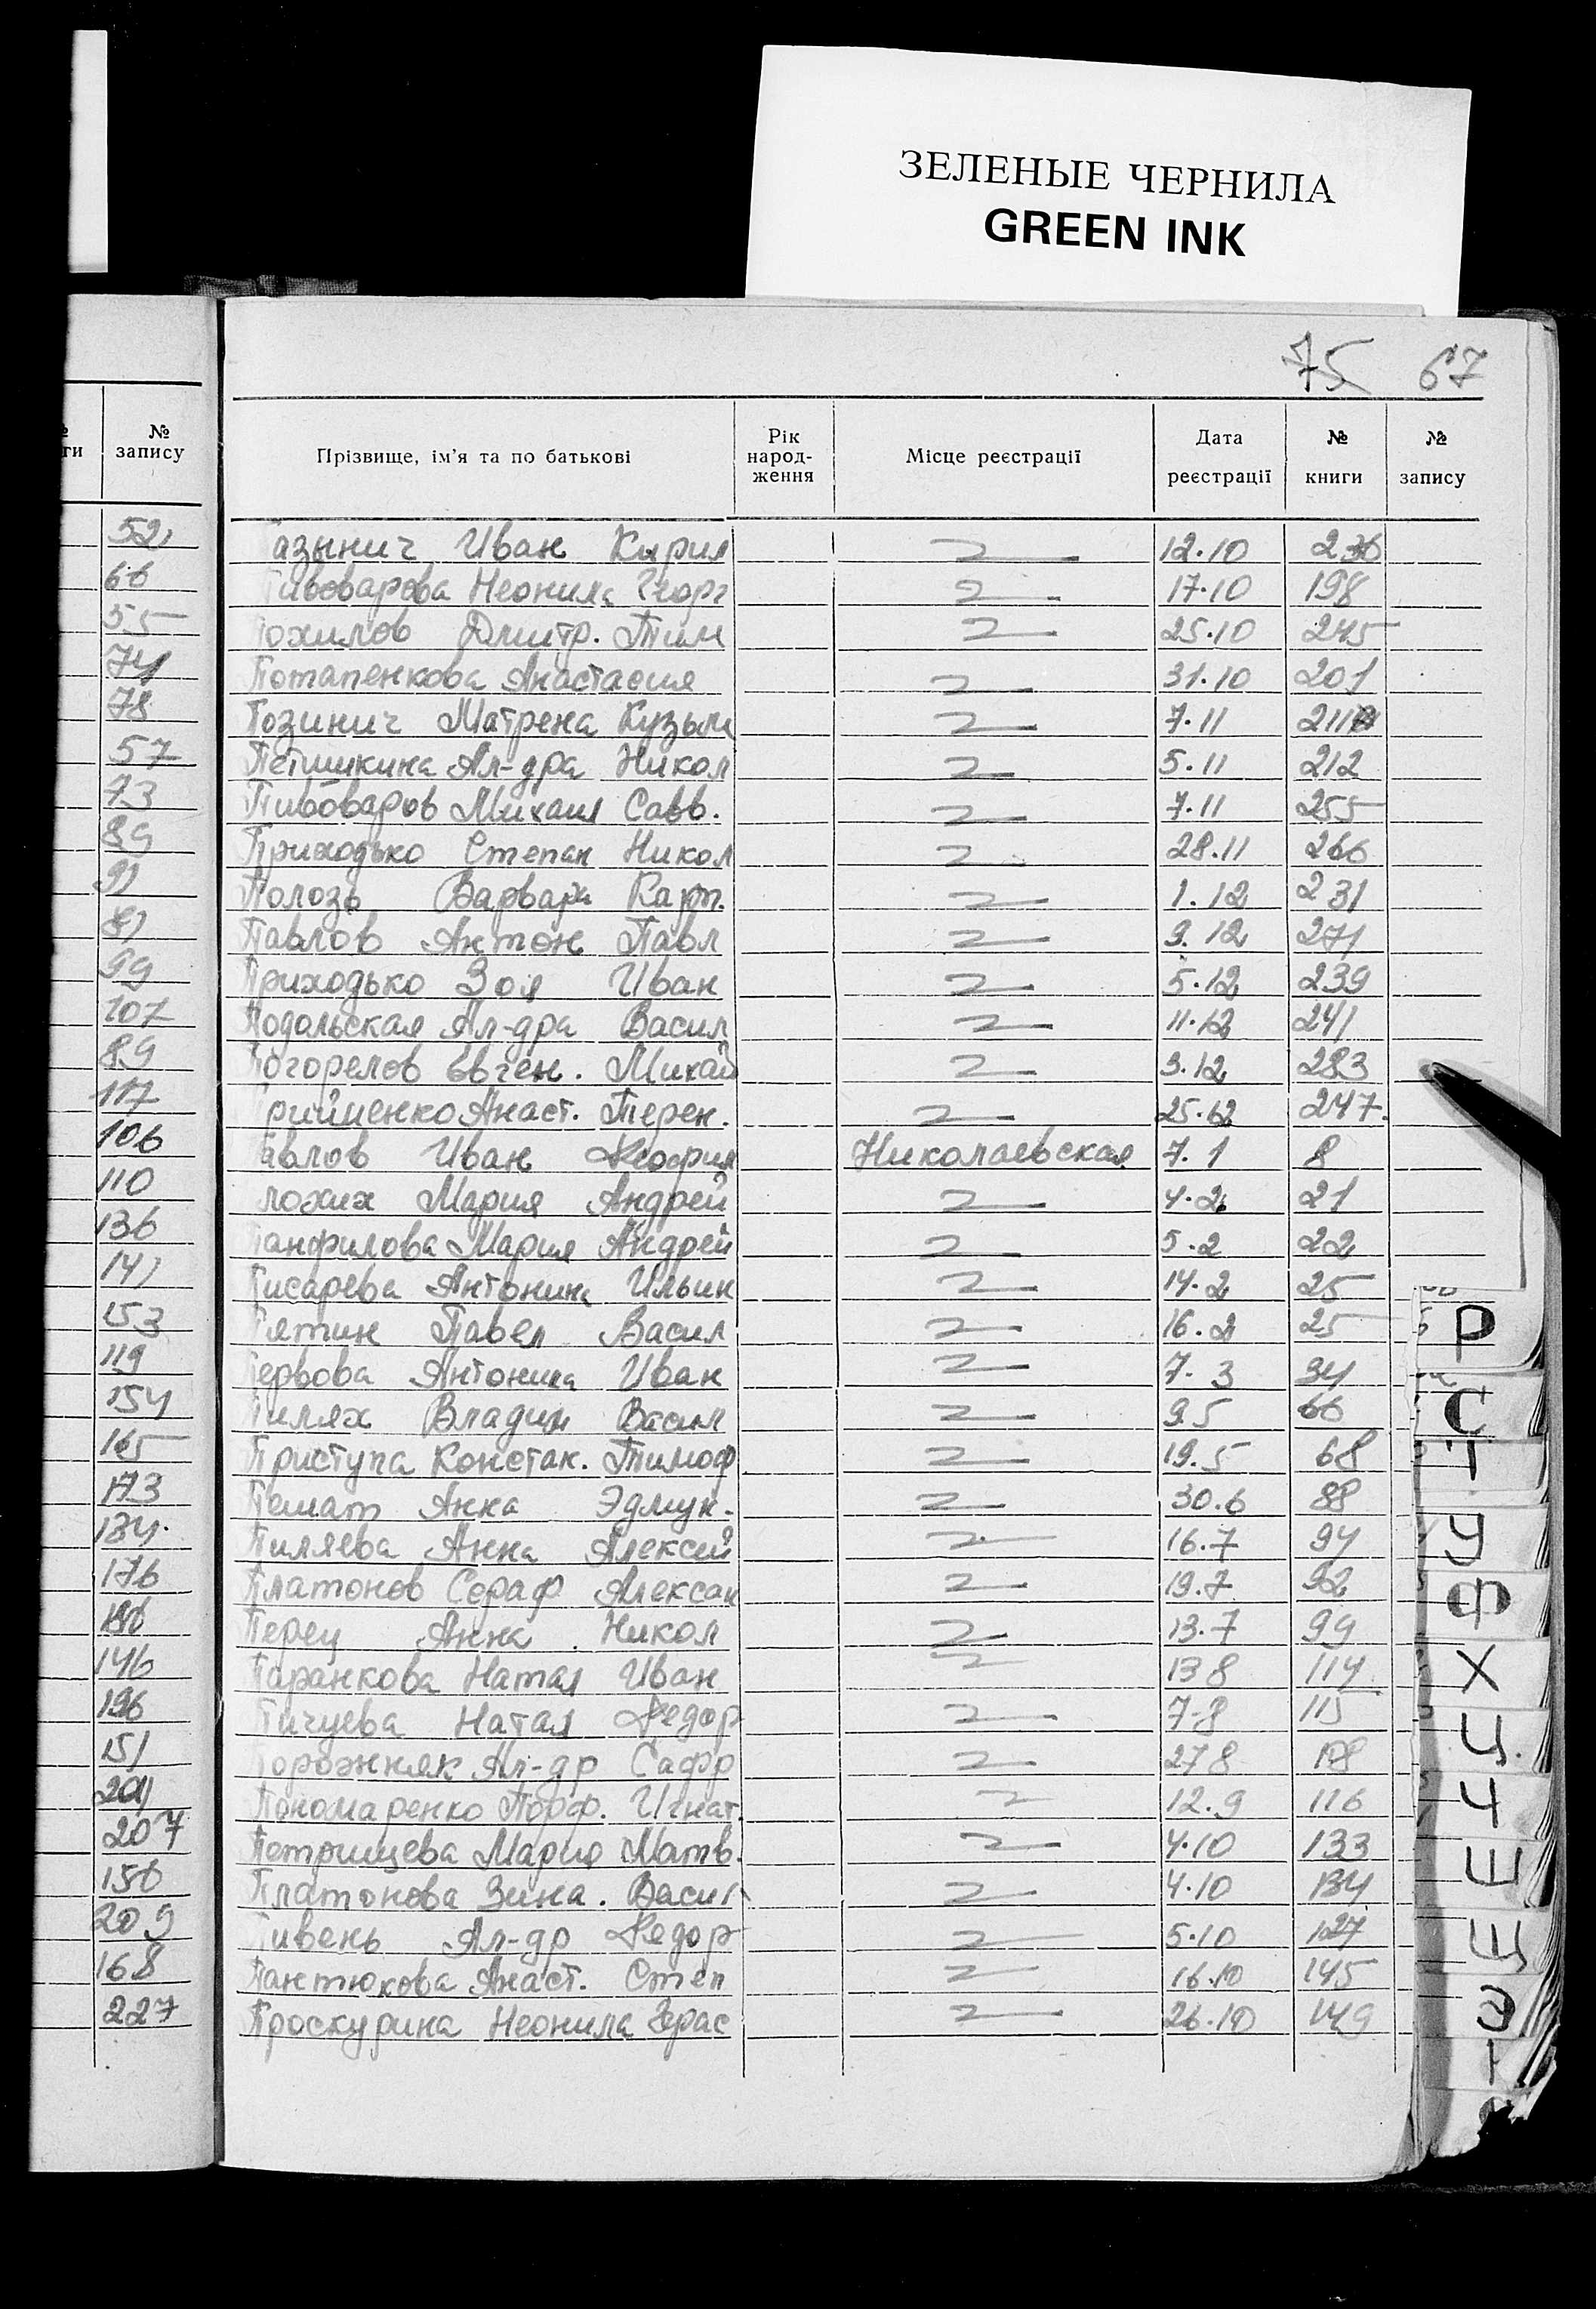 ЗЕЛЕНЫЕ ЧЕРНИЛА
GREEN INK
75 67
№ запису
Прізвище, ім'я та по батькові Рік народження Місце реєстрації Дата реєстрації № книги № запису
52
66
55
74
78
57
73
89
91
81
99
107
89
117
106
110
136
141
153
119
154
165
173
134
176
146
196
151
204
207
158
209
168
227
азынич Иван Кирил 12.10 236
Пивоварова Неонила Георг 17.10 198
Похилов Дмитр. Тим 25.10 245
Потапенкова Анастасия 31.10 201
Позинич Матрена Кузьм 7.11 211
Петишкина Ал-дра Никол 5.11 212
Пивоваров Михаил Савв. 7.11 255
Приходько Степан Никол 28.11 266
Полозь Варвара Карп. 1.12 231
Павлов Антон Павл 9.12 271
Приходько Зоя Иван 5.12 239
Подольская Ал-дра Васил 11.12 241
Погорелов Евген. Михай 9.12 283
Прийменко Анаст. Терен. 25.12 247.
Павлов Иван Феофил Николаевская 7.1 8
лохих Мария Андрей 4.2 21
Панфилова Мария Андрей 5.2 22
Писарева Антонина Ильин 14.2 25
Пятин Павел Васил 16.2 25
Первова Антонина Иван 7.3 34
Пилях Владим Васил 9.5 66
Приступа Констан. Тимоф 19.5 68
Пешат Анна Эдмун. 30.6 88
Пиляева Анна Алексей 16.7 94
Платонов Сераф Алексан 19.7 92
Перец Анна Никол 13.7 99
Паранкова Натал Иван 13 8 114
Пичуева Натал Федор 7-8 115
Порожняк Ал-др Сафр 27 8
Пономаренко Порф. Игнат. 12.9 116
Петрищева Мария Матв. 4.10 133
Платонова Зина. Васил 4.10 134
Пивень Ал-др Федор 5.10 127
Пантюкова Анаст. Степ 16.10 145
Проскурина Неонила Герас 26.10 149
Р
С
Т
У
Ф
Х
Ц
Ч
Ш
Щ
Э